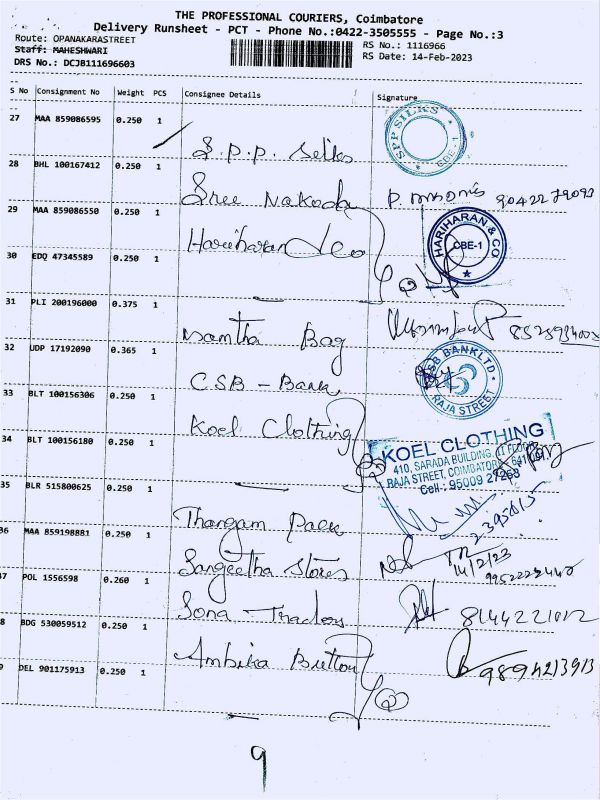 THE PROFESSIONAL COURIERS, Coimbatore
Delivery Runsheet - PCT - Phone No.:0422-3505555 - Page No.:3
Route: OPANAKARASTREET
RS No.: 1116966
Staff: MAHESHWARI
RS Date: 14-Feb-2023
DRS No.: DCJB111696603
S No Consignment No Weight PCS Consignee Details Signature
27 MAA 859086595 0.250 1
S.P.P. Silks
SPP SILKS CBE-1
28 BHL 100167412 0.250 1
Sree Nakoda
90422 79093
29 MAA 859086550 0.250 1
Hariharan & Co
HARIHARAN & CO
CBE-1
30 EDQ 47345589 0.250 1
31 PLI 200196000 0.375 1
Mamtha Bag
32 UDP 17192090 0.365 1
CSB - Bank
CSB BANK LTD
RAJA STREET
33 BLT 100156306 0.250 1
Koel Clothing
KOEL CLOTHING
410, SARADA BUILDING, II FLOOR
RAJA STREET, COIMBATORE - 641 001
Cell : 95009 27268
34 BLT 100156180 0.250 1
35 BLR 515800625 0.250 1
Thangam
2395015
36 MAA 859198881 0.250 1
Sangeetha Stores
14/2/23
37 POL 1556598 0.260 1
Sona Traders
8144221012
38 BDG 530059512 0.250 1
Ambika Button
9894213913
39 DEL 901175913 0.250 1
9